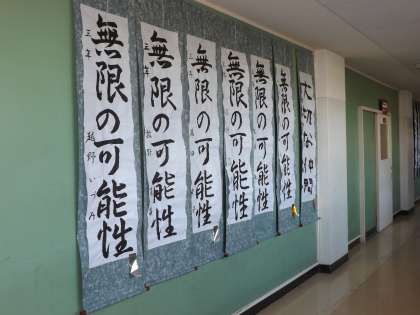 無限の可能性
三年
越野いづみ
無限の可能性
三年
無限の可能性
三年
無限の可能性
無限の可能性
無限の可能性
大切な仲間